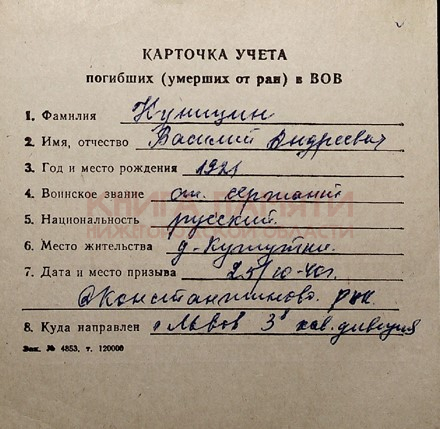 КАРТОЧКА УЧЕТА
погибших (умерших от ран) в ВОВ
1. Фамилия Куницин
2. Имя, отчество Василий Андреевич
3. Год и место рождения 1921
КНИГА ПАМЯТИ
НИЖЕГОРОДСКОЙ ОБЛАСТИ
4. Воинское звание ст. сержант
5. Национальность русский
6. Место жительства д.
7. Дата и место призыва 25/10-40г.
рвк.
8. Куда направлен г Львов 3я кав. дивизия
Зак. № 4853, т. 120000